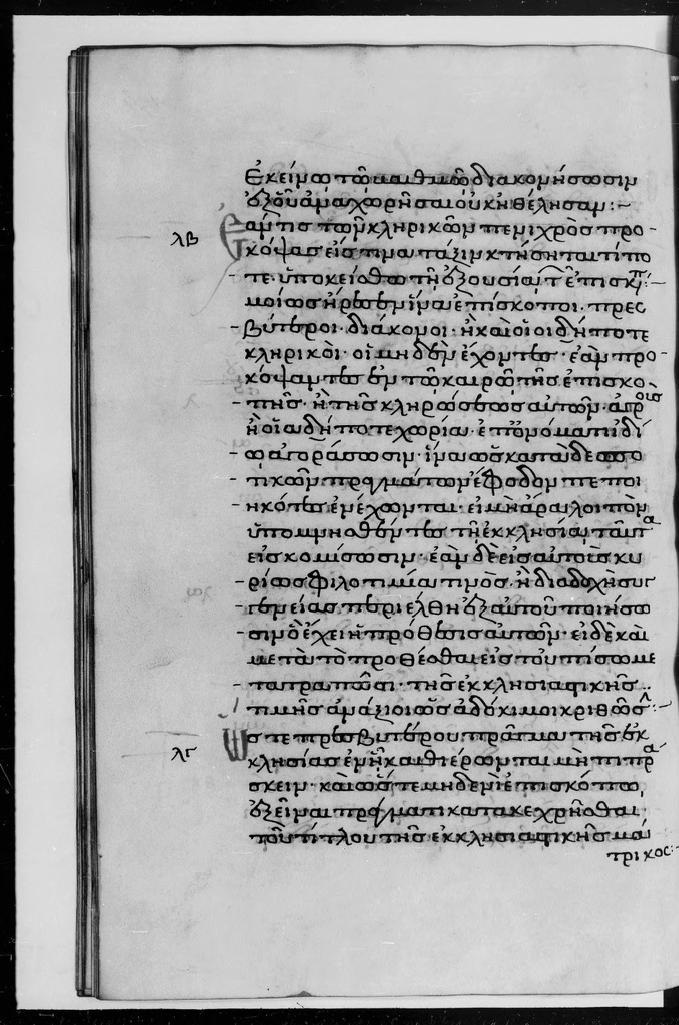 Ἐκείνῳ τῷ βαθμῷ διακονήσωσιν
ἐξ οὗ ἀναχωρῆσαι οὐκ ἠθέλησαν :~
λβ Ἐάν τις τῶν κληρικῶν πενιχρὸς προ-
κόψας εἰς τινα τάξιν κτήσηταί τί πο
τε· ὑποκείσθω τῇ ἐξουσίᾳ τοῦ ἐπισκόπου :~
μοίως ἤρεσεν ἵνα ἐπίσκοποι· πρεσ
βύτεροι· διάκονοι· ἢ καὶ οἱ οἱδήποτε
κληρικοὶ· οἱ μηδὲν ἔχοντες· ἐὰν προ-
κόψαντες ἐν τῷ καιρῷ τῆς ἐπισκο
πῆς· ἢ τῆς κληρώσεως αὐτῶν· ἀγροὺς
ἢ οἱαδήποτε χωρία· ἐπ' ὀνόματι ἰδί
ῳ ἀγοράσωσιν· ἵνα ὡς κατὰ δεσπο
τικῶν πραγμάτων ἔφοδον πεποι
ηκότες ἐνέχωνται· εἰ μὴ ἄρα λοιπὸν
ὑπομνησθέντες τῇ ἐκκλησίᾳ ταῦτα
εἰσκομίσωσιν· ἐὰν δὲ εἰς αὐτοὺς κυ
ρίως φιλοτιμίᾳ τινὸς· ἢ διαδοχῇ συγ
γενείας περιέλθῃ ἐξ αὐτοῦ ποιήσω
σιν ὃ ἔχει ἡ πρόθεσις αὐτῶν· εἰ δὲ καὶ
μετὰ τὸ προθέσθαι εἰς τοὐπίσω με
τατραπῶσι· τῆς ἐκκλησιαστικῆς
τιμῆς ἀνάξιοι ὡς ἀδόκιμοι κριθῶσι :~
λγ Ὥστε πρεσβυτέρου πρᾶγμα τῆς ἐκ
κλησίας ἐν ᾗ καθιέρωνται μὴ πιπρά
σκειν· καὶ ὥστε μηδενὶ ἐπισκόπῳ,
ἐξεῖναι πράγματι κατακεχρῆσθαι
τοῦ τίτλου τῆς ἐκκλησιαστικῆς μά
τρικος :~